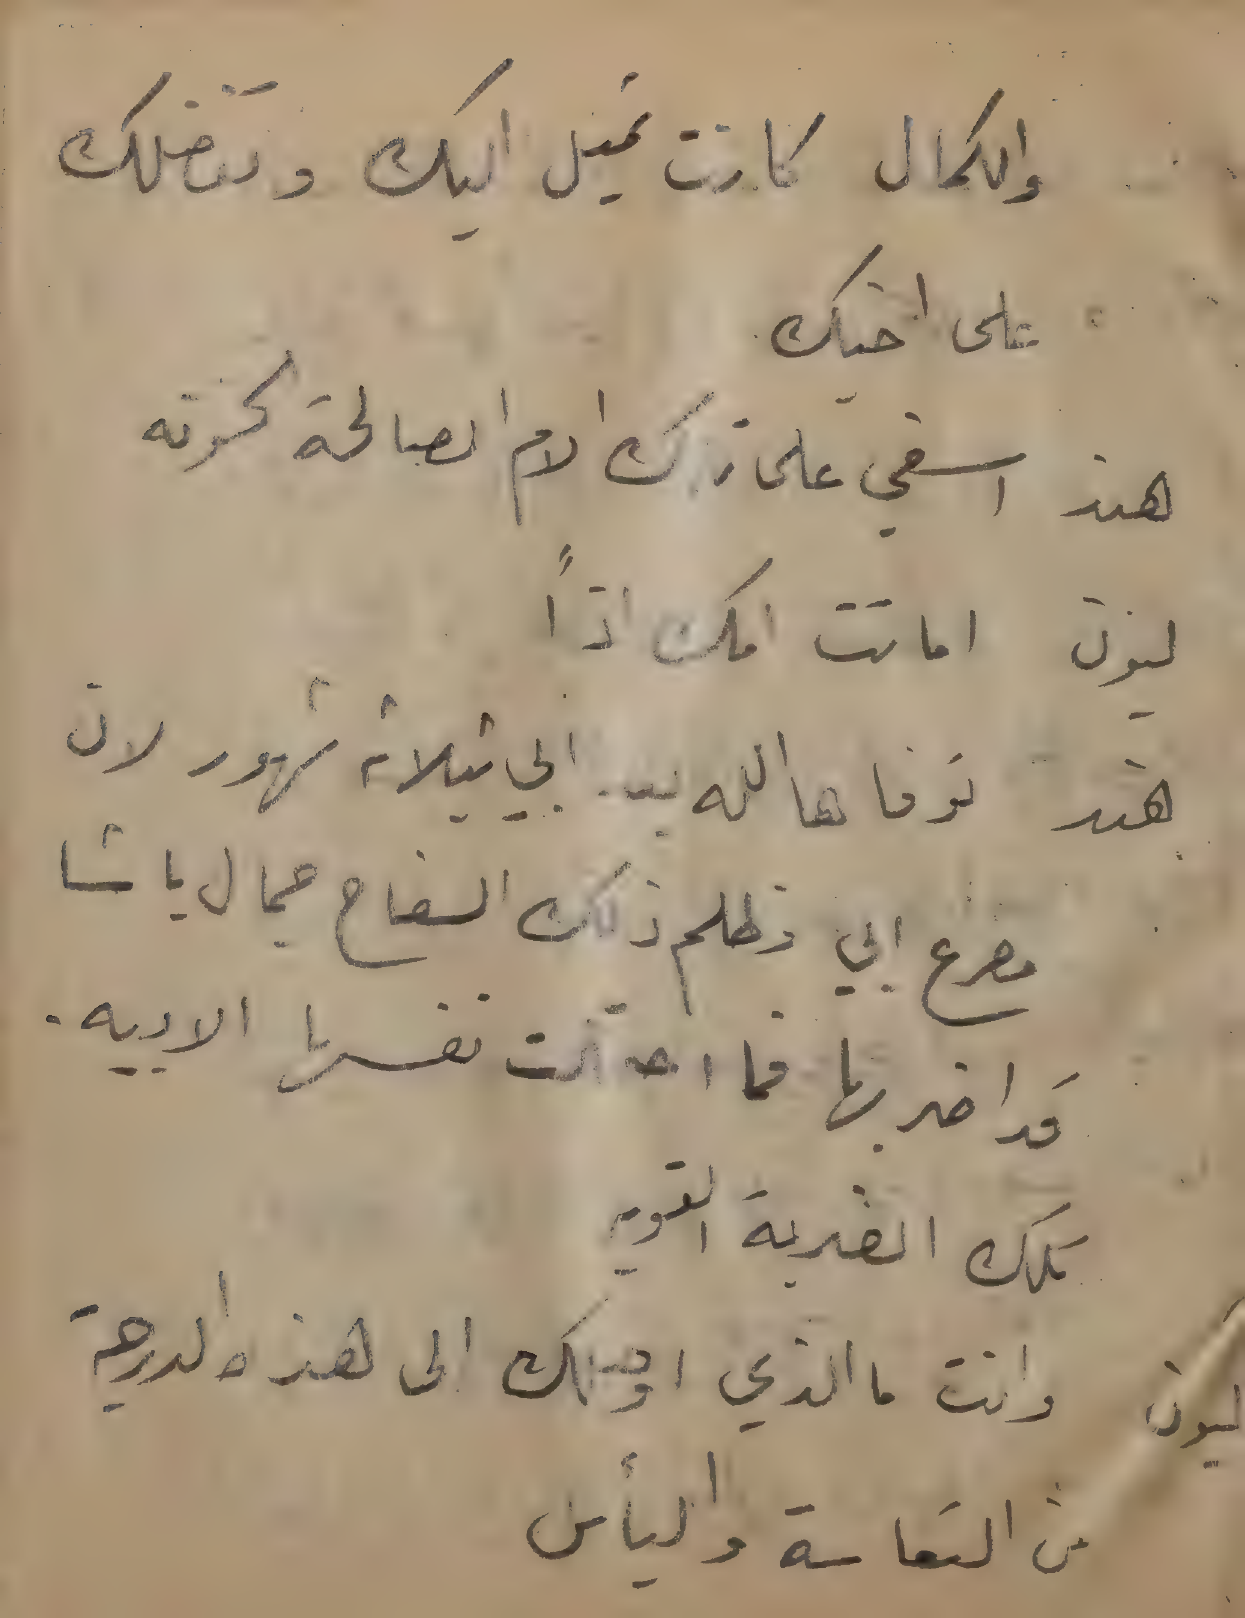 والكمال كانت تميل اليك وتفضلك
على اخيك
هند اسفي على تلك الام الصالحة الحنونه
ليون اماتت امك اذاً
هند توفاها الله بعد ابي بثلاثه شهور لان
مصرع ابي وظلم ذلك السفاح جمال باشا
قد اضر بها فما احتملت نفسها الابيه
تلك الضربة القويه
ليون وانت ما الذي اوصلك الى هذه الدرجة
من التعاسة واليأس